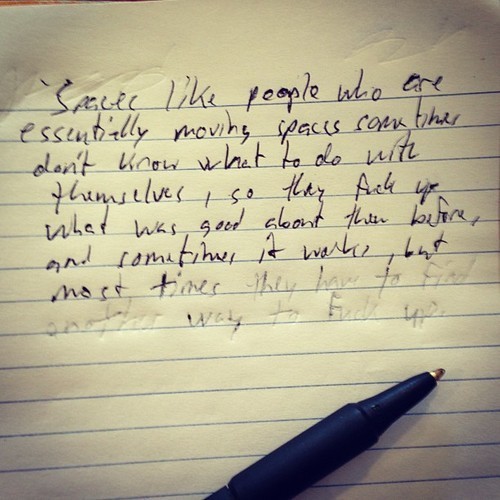 "Spaces like people who are
essentially moving spaces sometimes
don't know what to do with
themselves, so they fuck up
what was good about them before,
and sometimes it works, but
most times they have to find
another way to fuck up.